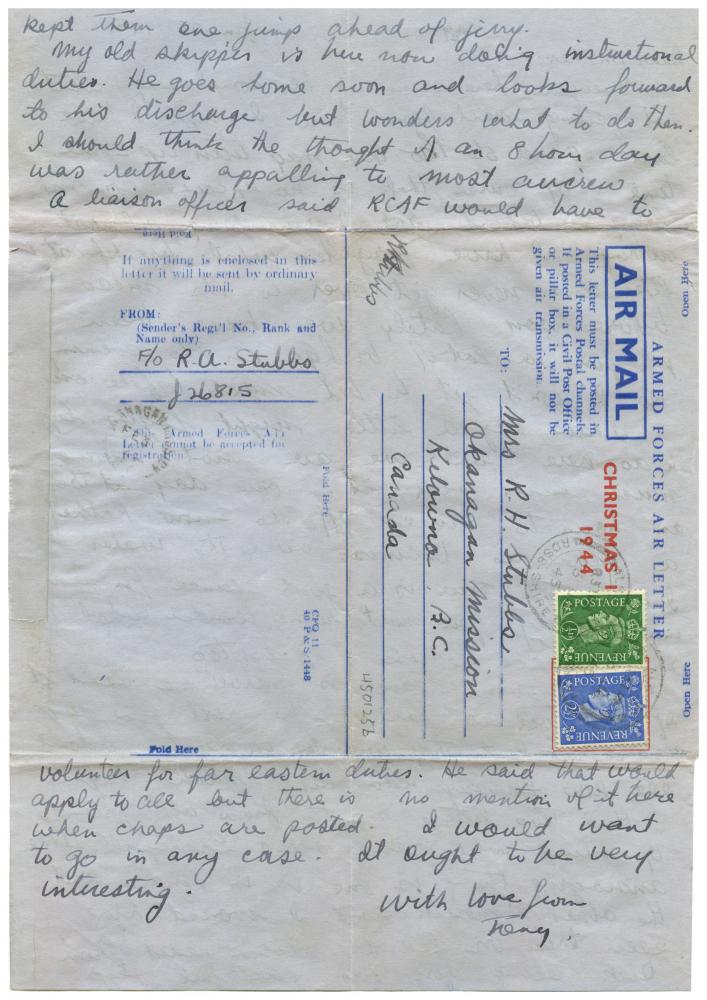 kept them one jump ahead of jerry.
My old skipper is here now doing instructional
duties. He goes home soon and looks forward
to his discharge but wonders what to do then.
I should think the thought of an 8 hour day
was rather appalling to most aircrew
A liaison officer said RCAF would have to
Fold Here
If anything is enclosed in this
letter it will be sent by ordinary
mail.
FROM:
(Sender's Regt'l No., Rank and
Name only)
F/o R.A. Stubbs
J26815
This Armed Forces Air
Letter cannot be accepted for
registration.
Fold Here
CPQ 11
40 P & S 1448
Fold Here
Open Here
ARMED FORCES AIR LETTER
Open Here
AIR MAIL
This letter must be posted in
Armed Forces Postal channels.
If posted in a Civil Post Office
or pillar box, it will not be
given air transmission.
CHRISTMAS
1944
TO:
Mrs R.H. Stubbs
Okanagan Mission
Kelowna, B.C.
Canada
Stubbs
POSTAGE
½D
REVENUE
POSTAGE
2½D
REVENUE
volunteer for far eastern duties. He said that would
apply to all but there is no mention of it here
when chaps are posted. I would want
to go in any case. It ought to be very
interesting.
with love from
Tony.